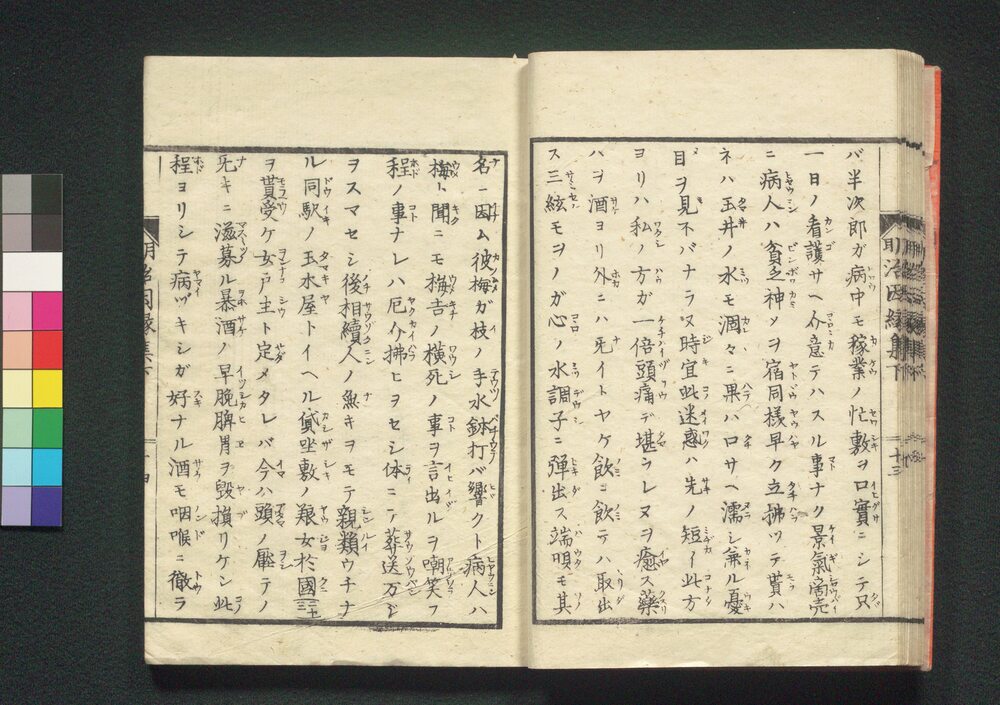 バ半次郎ガ病中モ稼業ノ忙敷ヲ口實ニシテ只
一日ノ看護サヘ介意テハスル事ナク景氣商売
ニ病人ハ貧乏神メヲ宿同様早ク立拂ツテ貰ハ
ネハ玉井ノ水モ涸々ニ果ハロサヘ濡シ兼ル憂
目ヲ見ネバナラヌ時宜此迷惑ハ先ノ短イ此方
ヨリハ私ノ方ガ一倍頭痛デ堪ラレヌヲ癒ス藥
ハヲ酒ヨリ外ニハ旡イトヤケ飲ニ飲テハ取出
ス三絃モヲノガ心ノ水調子ニ弾出ス端唄モ其
名ニ因ム彼梅ガ枝ノ手水鉢打バ響クト病人ハ
梅ト聞ニモ梅吉ノ横死ノ事ヲ言出ルヲ嘲笑フ
程ノ事ナレハ厄介拂ヒヲセシ体ニテ葬送万ヅ
ヲスマセシ後相續人ノ無キヲモテ親類ウチナ
ル同駅ノ玉水屋トイヘル貸坐敷ノ娘女於國二十
ヲ貰受ケ女戸主ト定メタレバ今ハ頭ノ壓テノ
旡キニ滋募ル暴酒ノ早晩脾胃ヲ毀損リケン此
程ヨリシテ病ヅキシガ好ナル酒モ咽喉ニ徹ラ
明治因縁集下
二十三